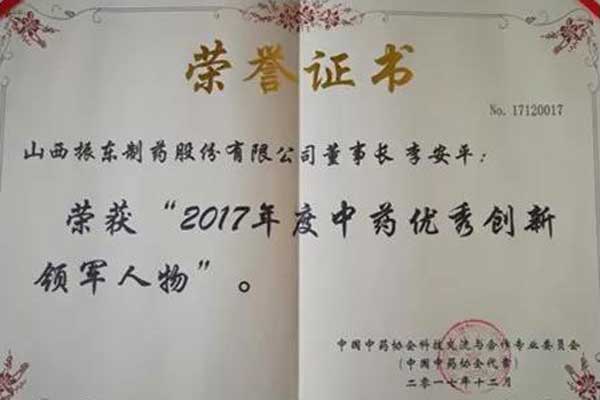 荣誉证书
No. 17120017
山西振东制药股份有限公司董事长 李安平：
荣获“2017年度中药优秀创新
领军人物”。
中国中药协会科技交流与合作专业委员会
(中国中药协会代章)
二〇一七年十二月